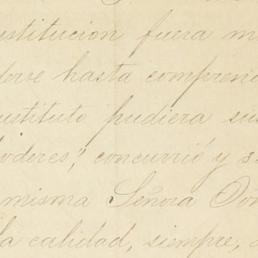 stitucion fuera m
hasta comprend
ustituto pudiera su
poderes", concurrió y s
misma Señora Doñ
la calidad, siempre, d